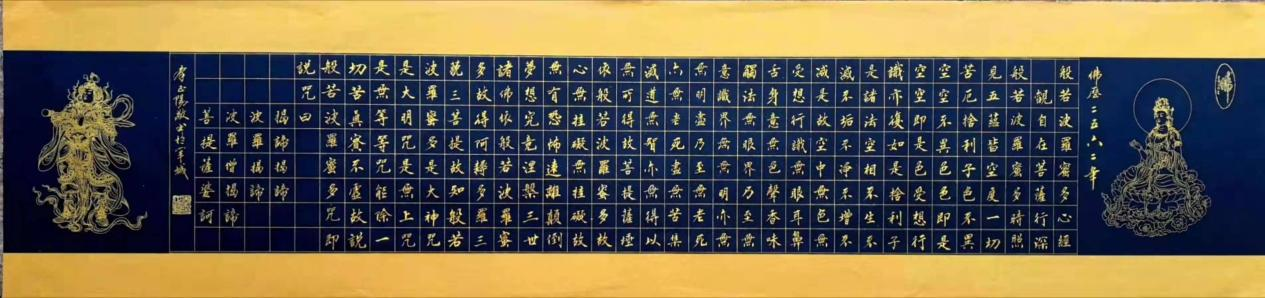 佛歷二五六二年
般若波羅蜜多心經
觀自在菩薩行深
般若波羅蜜多時照
見五蘊皆空度一切
苦厄捨利子色不異
空空不異色色即是
空空即是色受想行
識亦復如是捨利子
是諸法空相不生不
滅不垢不淨不增不
減是故空中無色無
受想行識無眼耳鼻
舌身意無色聲香味
觸法無眼界乃至無
意識界無無明亦無
無明盡乃至無老死
亦無老死盡無苦集
滅道無智亦無得以
無所得故菩提薩埵
依般若波羅蜜多故
心無挂礙無挂礙故
無有恐怖遠離顛倒
夢想究竟涅槃三世
諸佛依般若波羅蜜
多故得阿耨多羅三
藐三菩提故知般若
波羅蜜多是大神咒
是大明咒是無上咒
是無等等咒能除一
切苦真實不虛故說
般若波羅蜜多咒即
說咒曰
揭諦揭諦
波羅揭諦
波羅僧揭諦
菩提薩婆訶
敬書於羊城